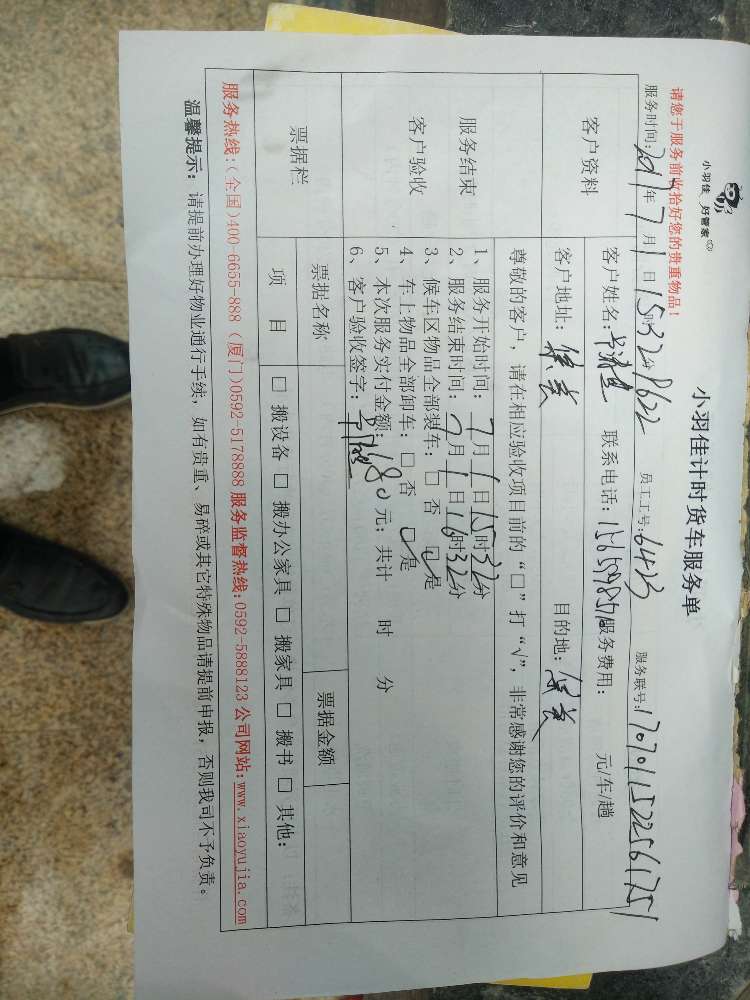 小羽佳 好管家
小羽佳计时货车服务单
请您于服务前收拾好您的贵重物品!
服务时间:2017年7月1日15时32分 员工工号:6423 服务联号:
客户资料
客户姓名: 联系电话: 服务费用: 元/车/趟
客户地址: 目的地:
尊敬的客户,请在相应验收项目前的“□”打“√”,非常感谢您的评价和意见
服务结束
客户验收
1、服务开始时间:7月1日15时32分
2、服务结束时间:7月1日16时32分
3、候车区物品全部装车:□ 否 ☑是
4、车上物品全部卸车:□ 否 ☑是
5、本次服务实付金额:180元;共计 时 分
6、客户验收签字:
票据栏
票据名称 票据金额
项 目 □ 搬设备 □ 搬办公家具 □ 搬家具 □ 搬书 □ 其他:
服务热线:(全国)400-6655-888 (厦门)0592-5178888 服务监督热线:0592-5888123 公司网站:www.xiaoyujia.com
温馨提示:请提前办理好物业通行手续,如有贵重、易碎或其它特殊物品请提前申报,否则我司不予负责。